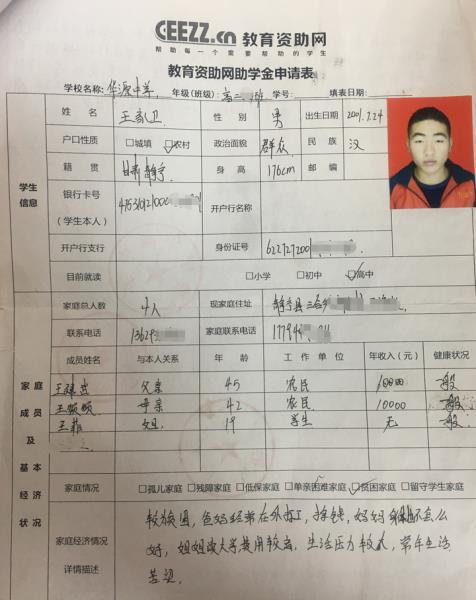 CEEZZ.cn 教育资助网
帮助每一个需要帮助的学生
教育资助网助学金申请表
学校名称: 华源中学 年级(班级): 高二 班 学号: 填表日期:
学生信息
姓名 王家卫 性别 男 出生日期 2001.7.24
户口性质 □城镇 ☑农村 政治面貌 群众 民族 汉
籍贯 甘肃静宁 身高 176cm 邮编
银行卡号(学生本人) 开户行名称
开户行支行 身份证号 622727200
目前就读 □小学 □初中 ☑高中
家庭成员及基本经济状况
家庭总人数 4人 现家庭住址 静宁县三合乡
联系电话 家庭联系电话
成员姓名 与本人关系 年龄 工作单位 年收入(元) 健康状况
父亲 45 农民 10000 一般
母亲 42 农民 10000 一般
王菲 19 学生 无 一般
家庭情况 □孤儿家庭 □残障家庭 □低保家庭 □单亲困难家庭 ☑贫困家庭 □留守学生家庭
家庭经济情况详情描述
较贫困,爸妈经常在外打工,挣钱,妈妈 不怎么
好,姐姐读大学费用较高,生活压力较大,常年生活